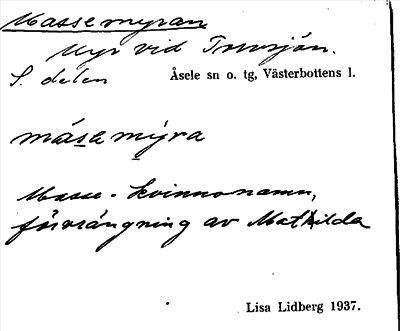 Massemyran
Myr vid Torvsjön.
S. delen Åsele sn o. tg, Västerbottens l.
måsemy̱ra
Masse - kvinnonamn,
förvrängning av Mathilda
Lisa Lidberg 1937.